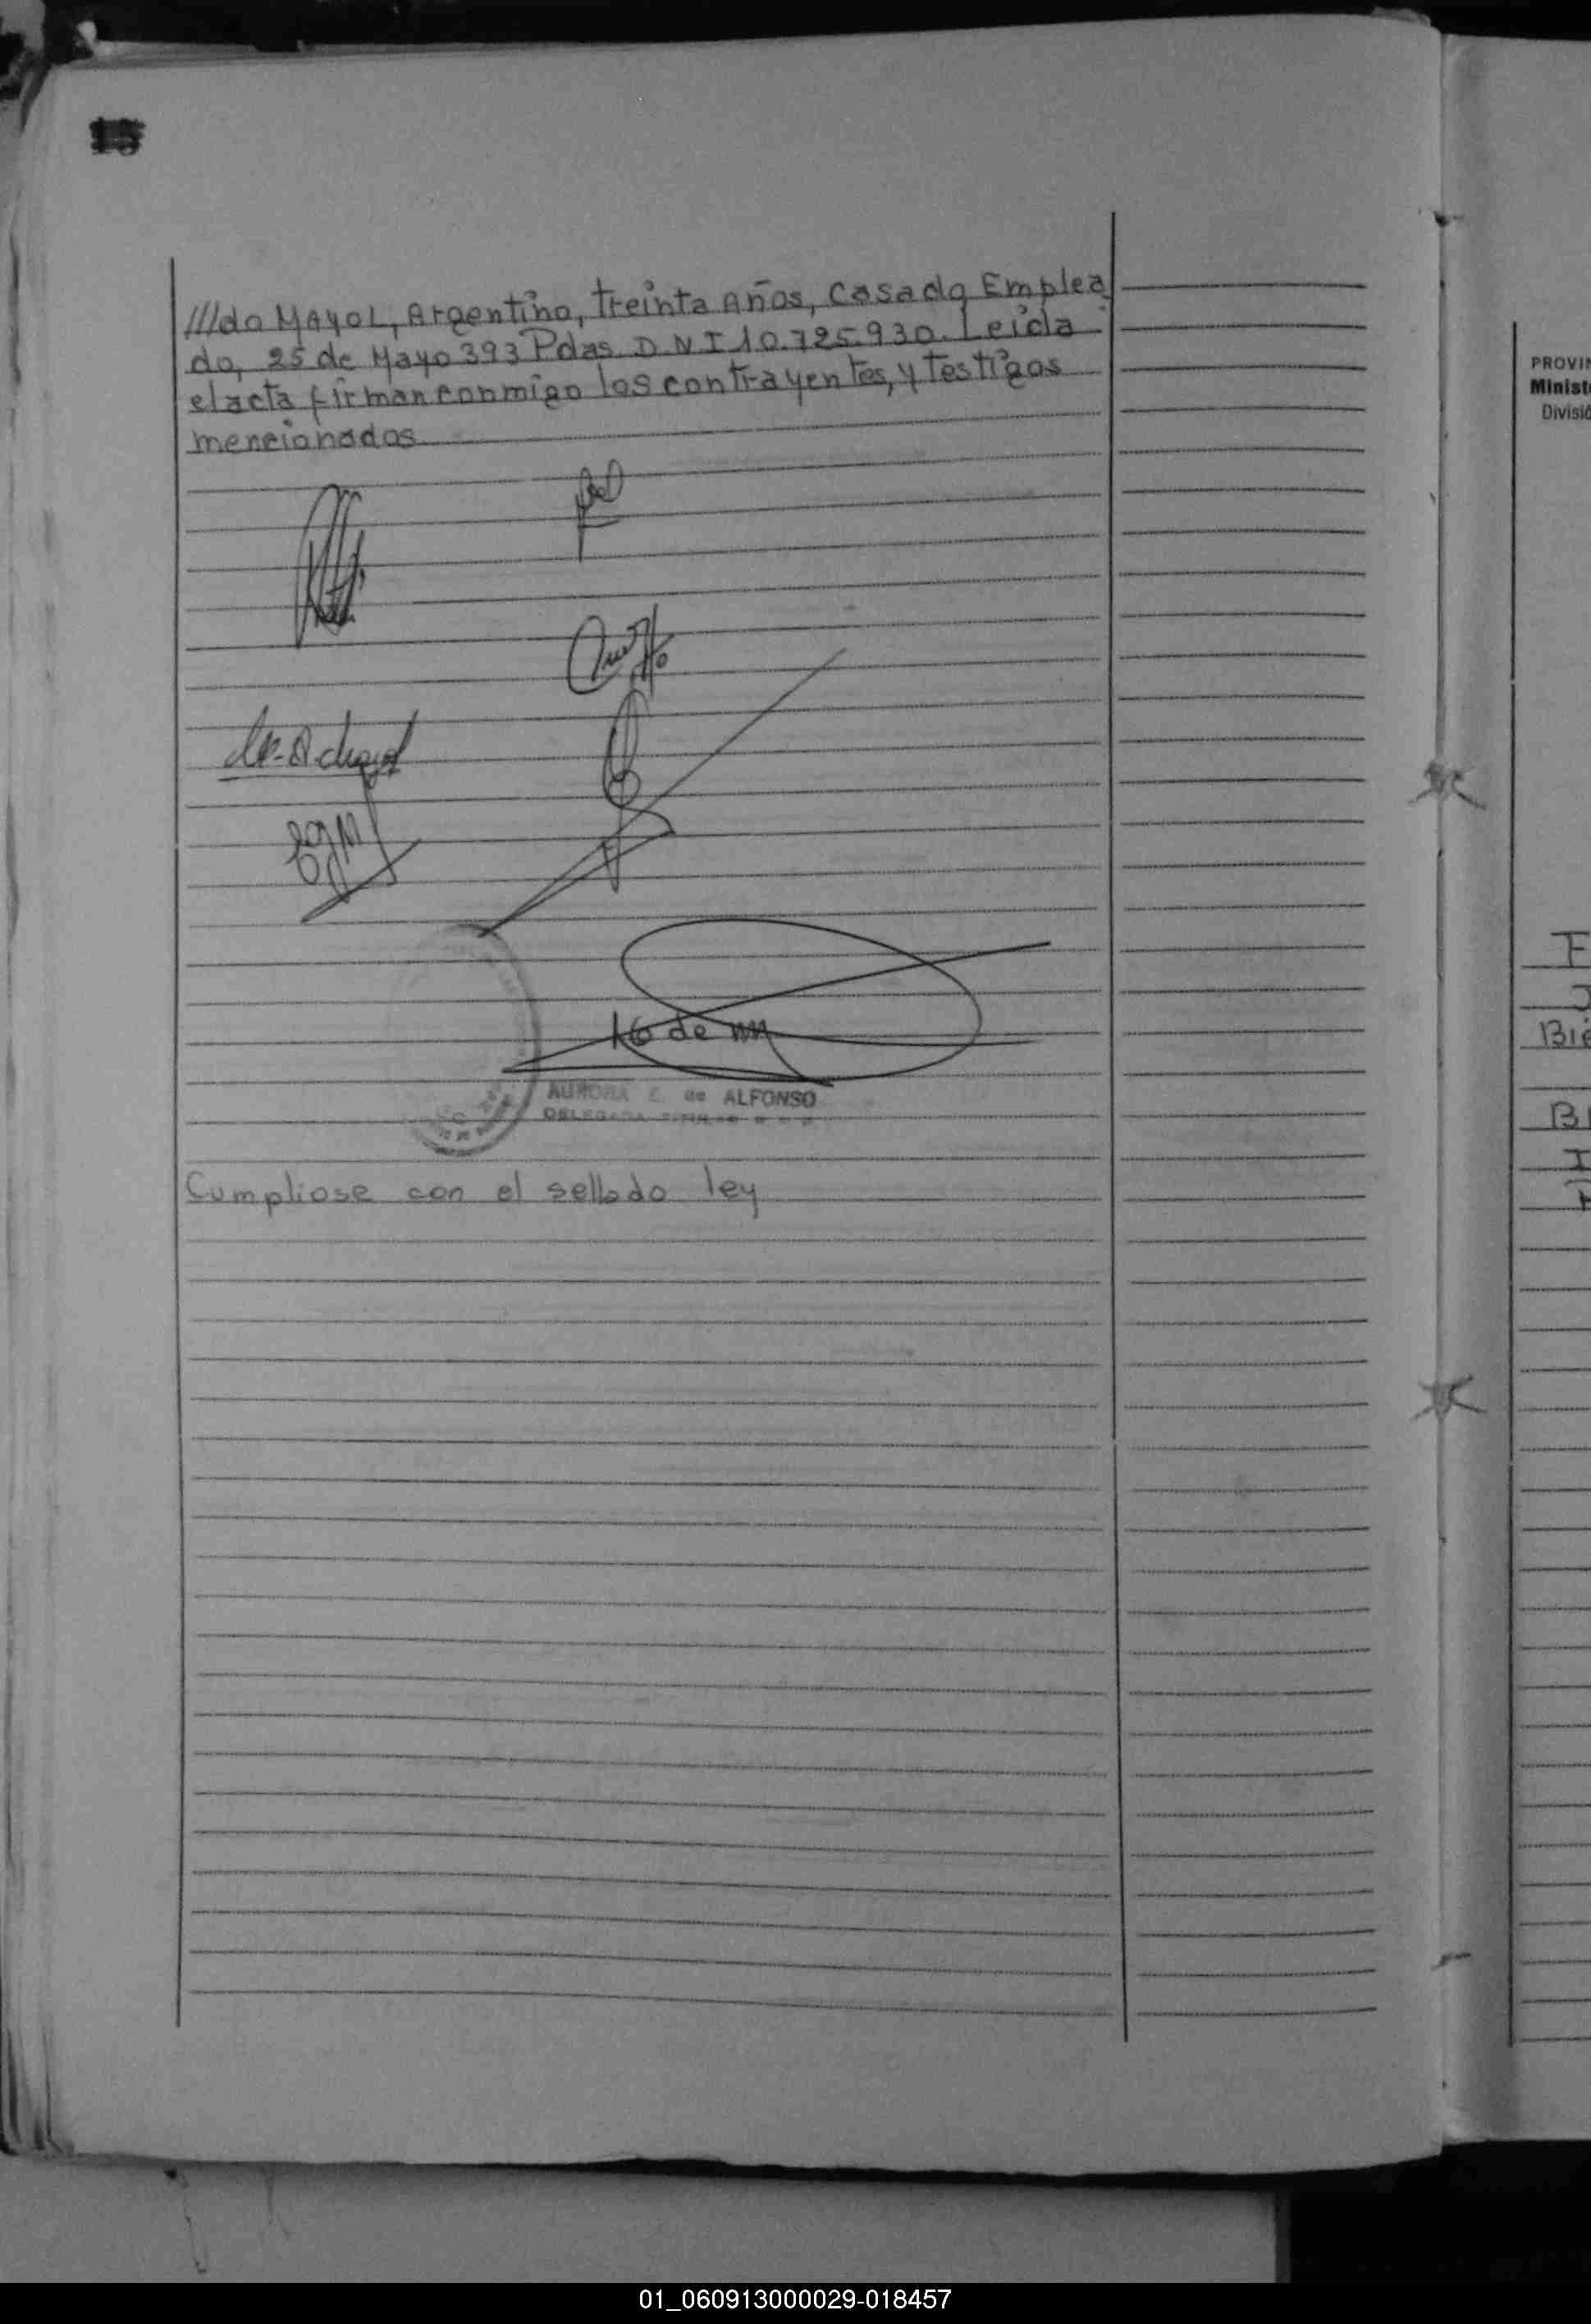 15
///do Mayol, Argentino, treinta Años, Casado Emplea
do, 25 de Mayo 393 Pdas D.N.I 10.725.930. Leida
el acta firman conmigo los contrayentes, y testigos
mencionados
AURORA E. de ALFONSO
DELEGADA
Cumpliose con el sellado ley
PROVIN
Ministe
Divisió
F
J
Bie
B
I
P
01_060913000029-018457